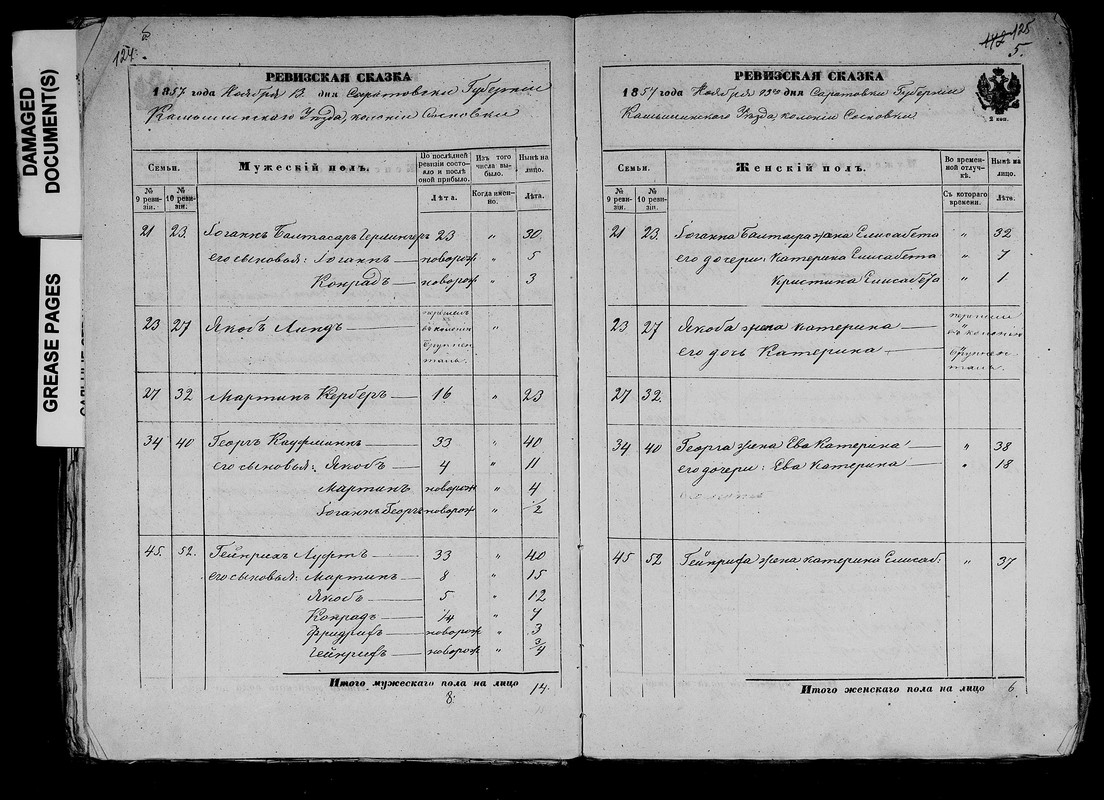 DAMAGED
DOCUMENT(S)
GREASE PAGES
124.
РЕВИЗСКАЯ СКАЗКА
1857 года Ноября 13. дня Саратовски Губерніи
Камышинскаго Уѣзда, колоніи Сосновки
Семьи.
Мужескій полъ.
По послѣдней ревизіи состояло и послѣ оной прибыло.
Изъ того числа выбыло.
Нынѣ на лицо.
№ 9 ревизіи.
№ 10 ревизіи.
Лѣта.
Когда именно.
Лѣта.
21 23. Іоганнъ Балтасаръ Герлингеръ 23 " 30.
его сыновья: Іоганнъ новорож " 5
Конрадъ новорож " 3
23 27 Якобъ Линдъ "
въ колонію
27 32 Мартинъ Керберъ 16 " 23
34 40 Георгъ Кауфманнъ 33 " 40
его сыновья: Якобъ 4 " 11
Мартинъ новорож " 4
Іоганнъ Георгъ новорож " 1/2
45. 52. Гейнрихъ Луфтъ 33 " 40
его сыновья: Мартинъ 8 " 15
Якобъ 5 " 12
Конрадъ 1/4 " 7
Фридрихъ новорож " 3
Гейнрихъ новорож " 3/4
Итого мужескаго пола на лицо 14.
8.
142 125
5.
РЕВИЗСКАЯ СКАЗКА
1857 года Ноября 13го дня Саратовки Губерніи
Камышинскаго Уѣзда колоніи Сосновки
2 коп.
Семьи.
Женскій полъ.
Во временной отлучкѣ.
Нынѣ на лицо.
№ 9 ревизіи.
№ 10 ревизіи.
Съ котораго времени.
Лѣта.
21 23. Іоганна Балтасара жена Елисабета " 32
его дочери: Катерина Елисабета " 7
Кристина Елисабета " 1
23 27 Якоба жена Катерина
его дочь Катерина
27 32.
34 40 Георга жена Ева Катерина " 38
его дочери: Ева Катерина " 18
45 52 Гейнриха жена Катерина Елисаб: " 37
Итого женскаго пола на лицо 6